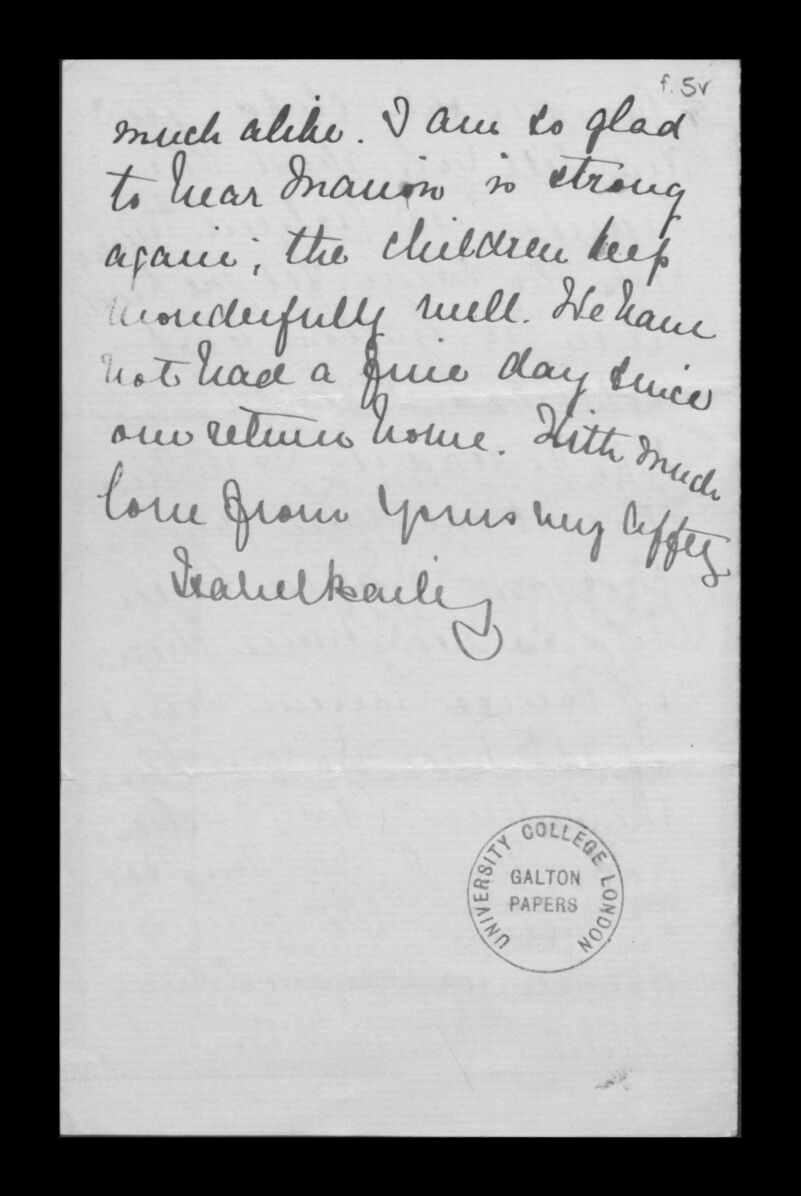 f. 5v
much alike. I am so glad
to hear Marion is strong
again; the children keep
wonderfully well. We have
not had a fine day since
our return home. With much
love from Yours very affty
Isabel
UNIVERSITY COLLEGE LONDON
GALTON
PAPERS